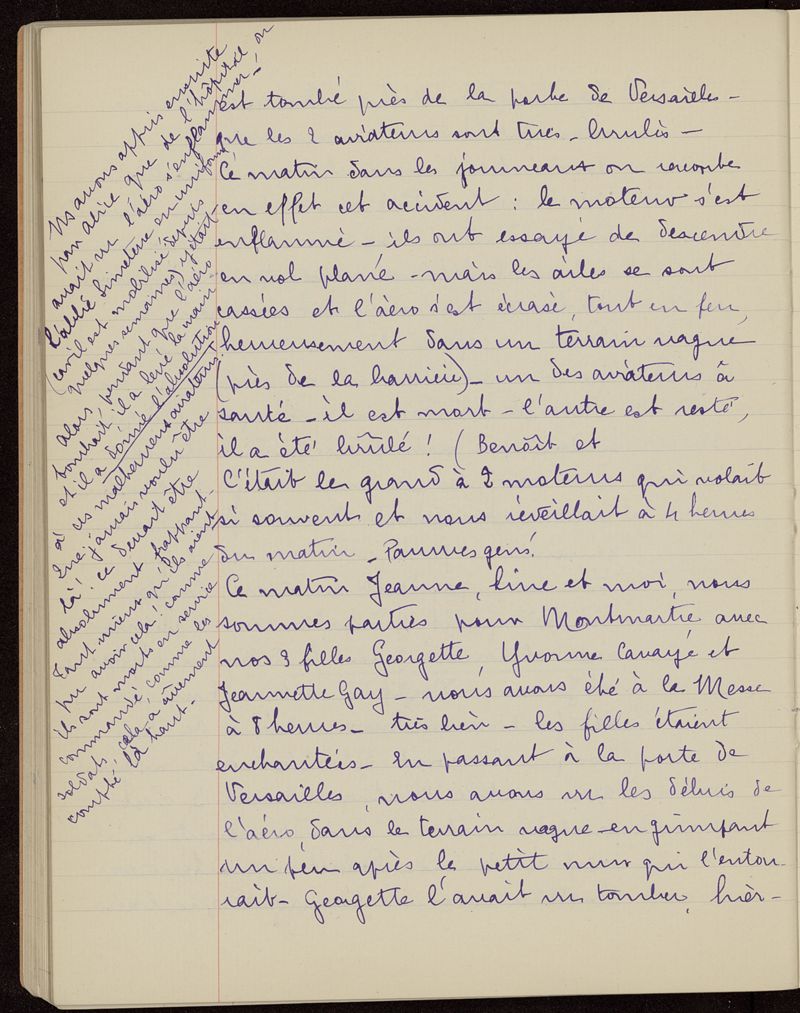 est tombé près de la porte de Versailles -
que les 2 aviateurs sont tués - brulés -
Ce matin dans les journeaux on raconte
en effet cet accident : le moteur s'est
enflammé - ils ont essayé de descendre
en vol plané - mais les ailes se sont
cassées et l'aéro s'est écrasé, tout en feu,
heureusement dans un terrain vague
(près de la barrière) - un des aviateurs a
sauté - il est mort - l'autre est resté,
il a été brûlé ! ( Benoît et
C'était le grand à 2 moteurs qui volait
si souvent et nous réveillait à 4 heures
du matin - Pauvres gens !
Ce matin Jeanne, Line et moi, nous
sommes parties pour Montmartre avec
nos 3 filles Georgette, Yvonne Cavayé et
Jeannette Gay - nous avons été à la Messe
à 8 heures - très bien - les filles étaient
enchantées - En passant à la porte de
Versailles, nous avons vu les débris de
l'aéro, dans le terrain vague - en grimpant
un peu après le petit mur qui l'entou-
rait - Georgette l'avait vu tomber, hier -
Ns avons appris ensuite
par Alice que de l'hôpital on
avait vu l'aéro s'enflammer - !
L'abbé Simeterre en uniforme
(car il est mobilisé depuis
quelques semaines) y était
alors, pendant que l'aéro
tombait, il a levé la main
et il a donné l'absolution
à ces malheureux aviateurs !
là ! ce devait être
absolument frappant -
Tant mieux qu'ils aient
pu avoir cela ! comme
ils sont morts en service
commandé, comme les
soldats, cela a sûrement
compté, là haut -